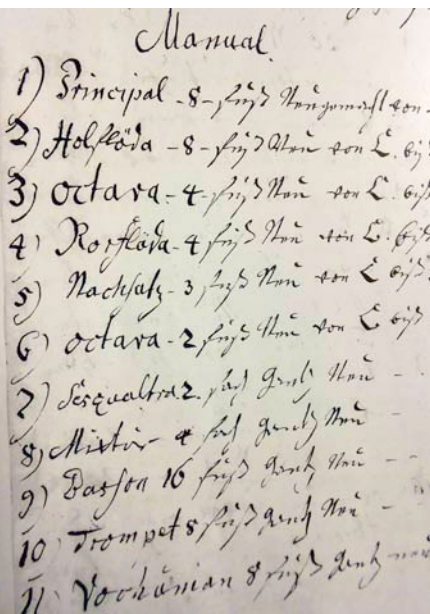 Manual.
1) Principal - 8 - fuß Neugemacht von
2) Holflöda - 8 - fuß Neu von C. biß
3) octava - 4 - fuß Neu von C. biß
4) Rorflöda - 4 fuß Neu von C. biß
5) Nachsatz - 3 fuß Neu von C biß
6) octava - 2 fuß Neu von C biß
7) Sesqualtra 2. fach gantz Neu -
8) Mixtur - 4 fach gantz Neu -
9) Basson 16 fuß gantz Neu - -
10) Trompet 8 fuß gantz Neu -
11) Vochúmian 8 fuß gantz neu